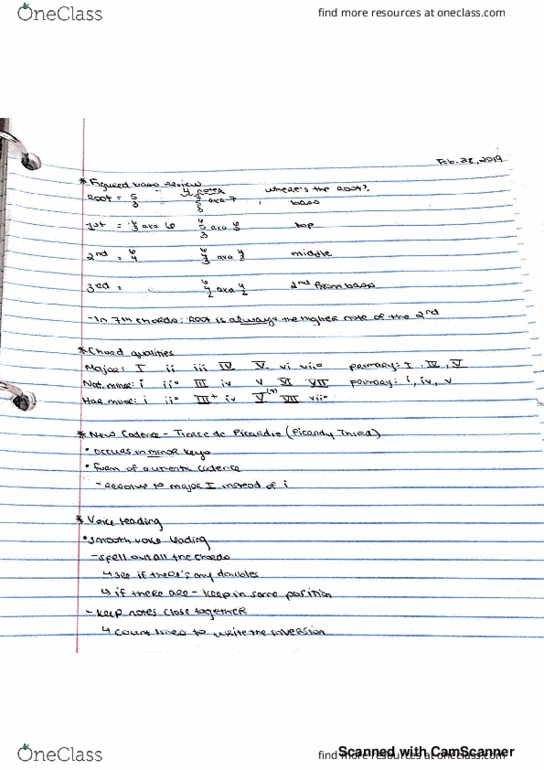 OneClass find more resources at oneclass.com
Feb. 28, 2019
* Figured bass review
4 notes where's the root?
Root = 5/3 7/5/3 aka 7, bass
1st = 6/3 aka 6 6/5/3 aka 6/5 top
2nd = 6/4 6/4/3 aka 4/3 middle
3rd = 6/4/2 aka 4/2 2nd from bass
- In 7th chords: Root is always the higher note of the 2nd
* Chord qualities
Major: I ii iii IV V vi vii° primary: I, IV, V
Nat. minor: i ii° III iv v VI VII primary: i, iv, v
Har minor: i ii° III+ iv V(7) VII vii°
* New Cadence - Tierce de Picardie (Picardy Third)
• occurs in minor keys
• Form of authentic cadence
- resolve to major I instead of i
* Voice leading
• smooth voice leading
- spell out all the chords
↳ see if there's any doubles
↳ if there are - keep in same position
- keep notes close together
↳ count lines to write the inversion
Scanned with CamScanner
OneClass find more resources at oneclass.com